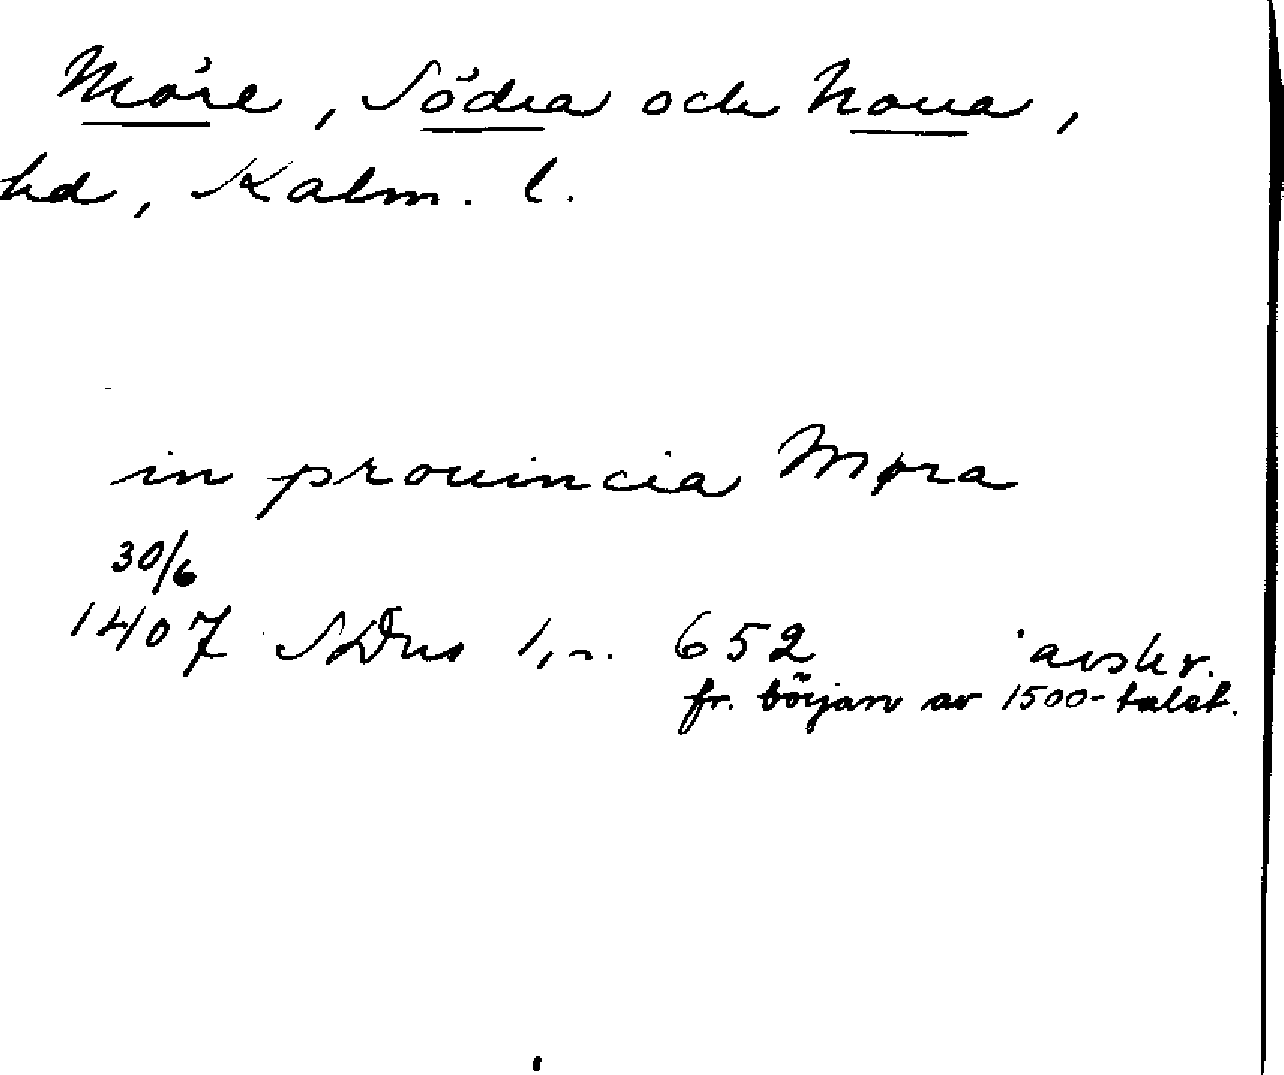 Möre, Södra och Norra,
hd, Kalm. l.
in prouincia Møra
30/6
1407 SDns 1, s. 652 avskr.
fr. början av 1500-talet.